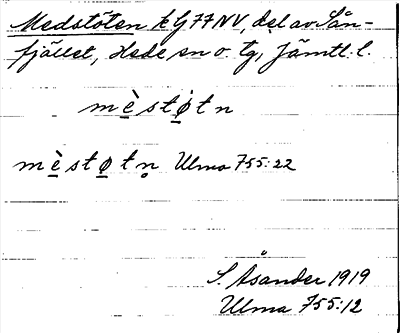 Medstöten k G77NV, del av Sån-
fjället, Hede sn o. tg, Jämtl. l.
mè̱stø̱̇tn
mè̱stø̱tn̥ Ulma 755:22
S. Åsander 1919
Ulma 755:12